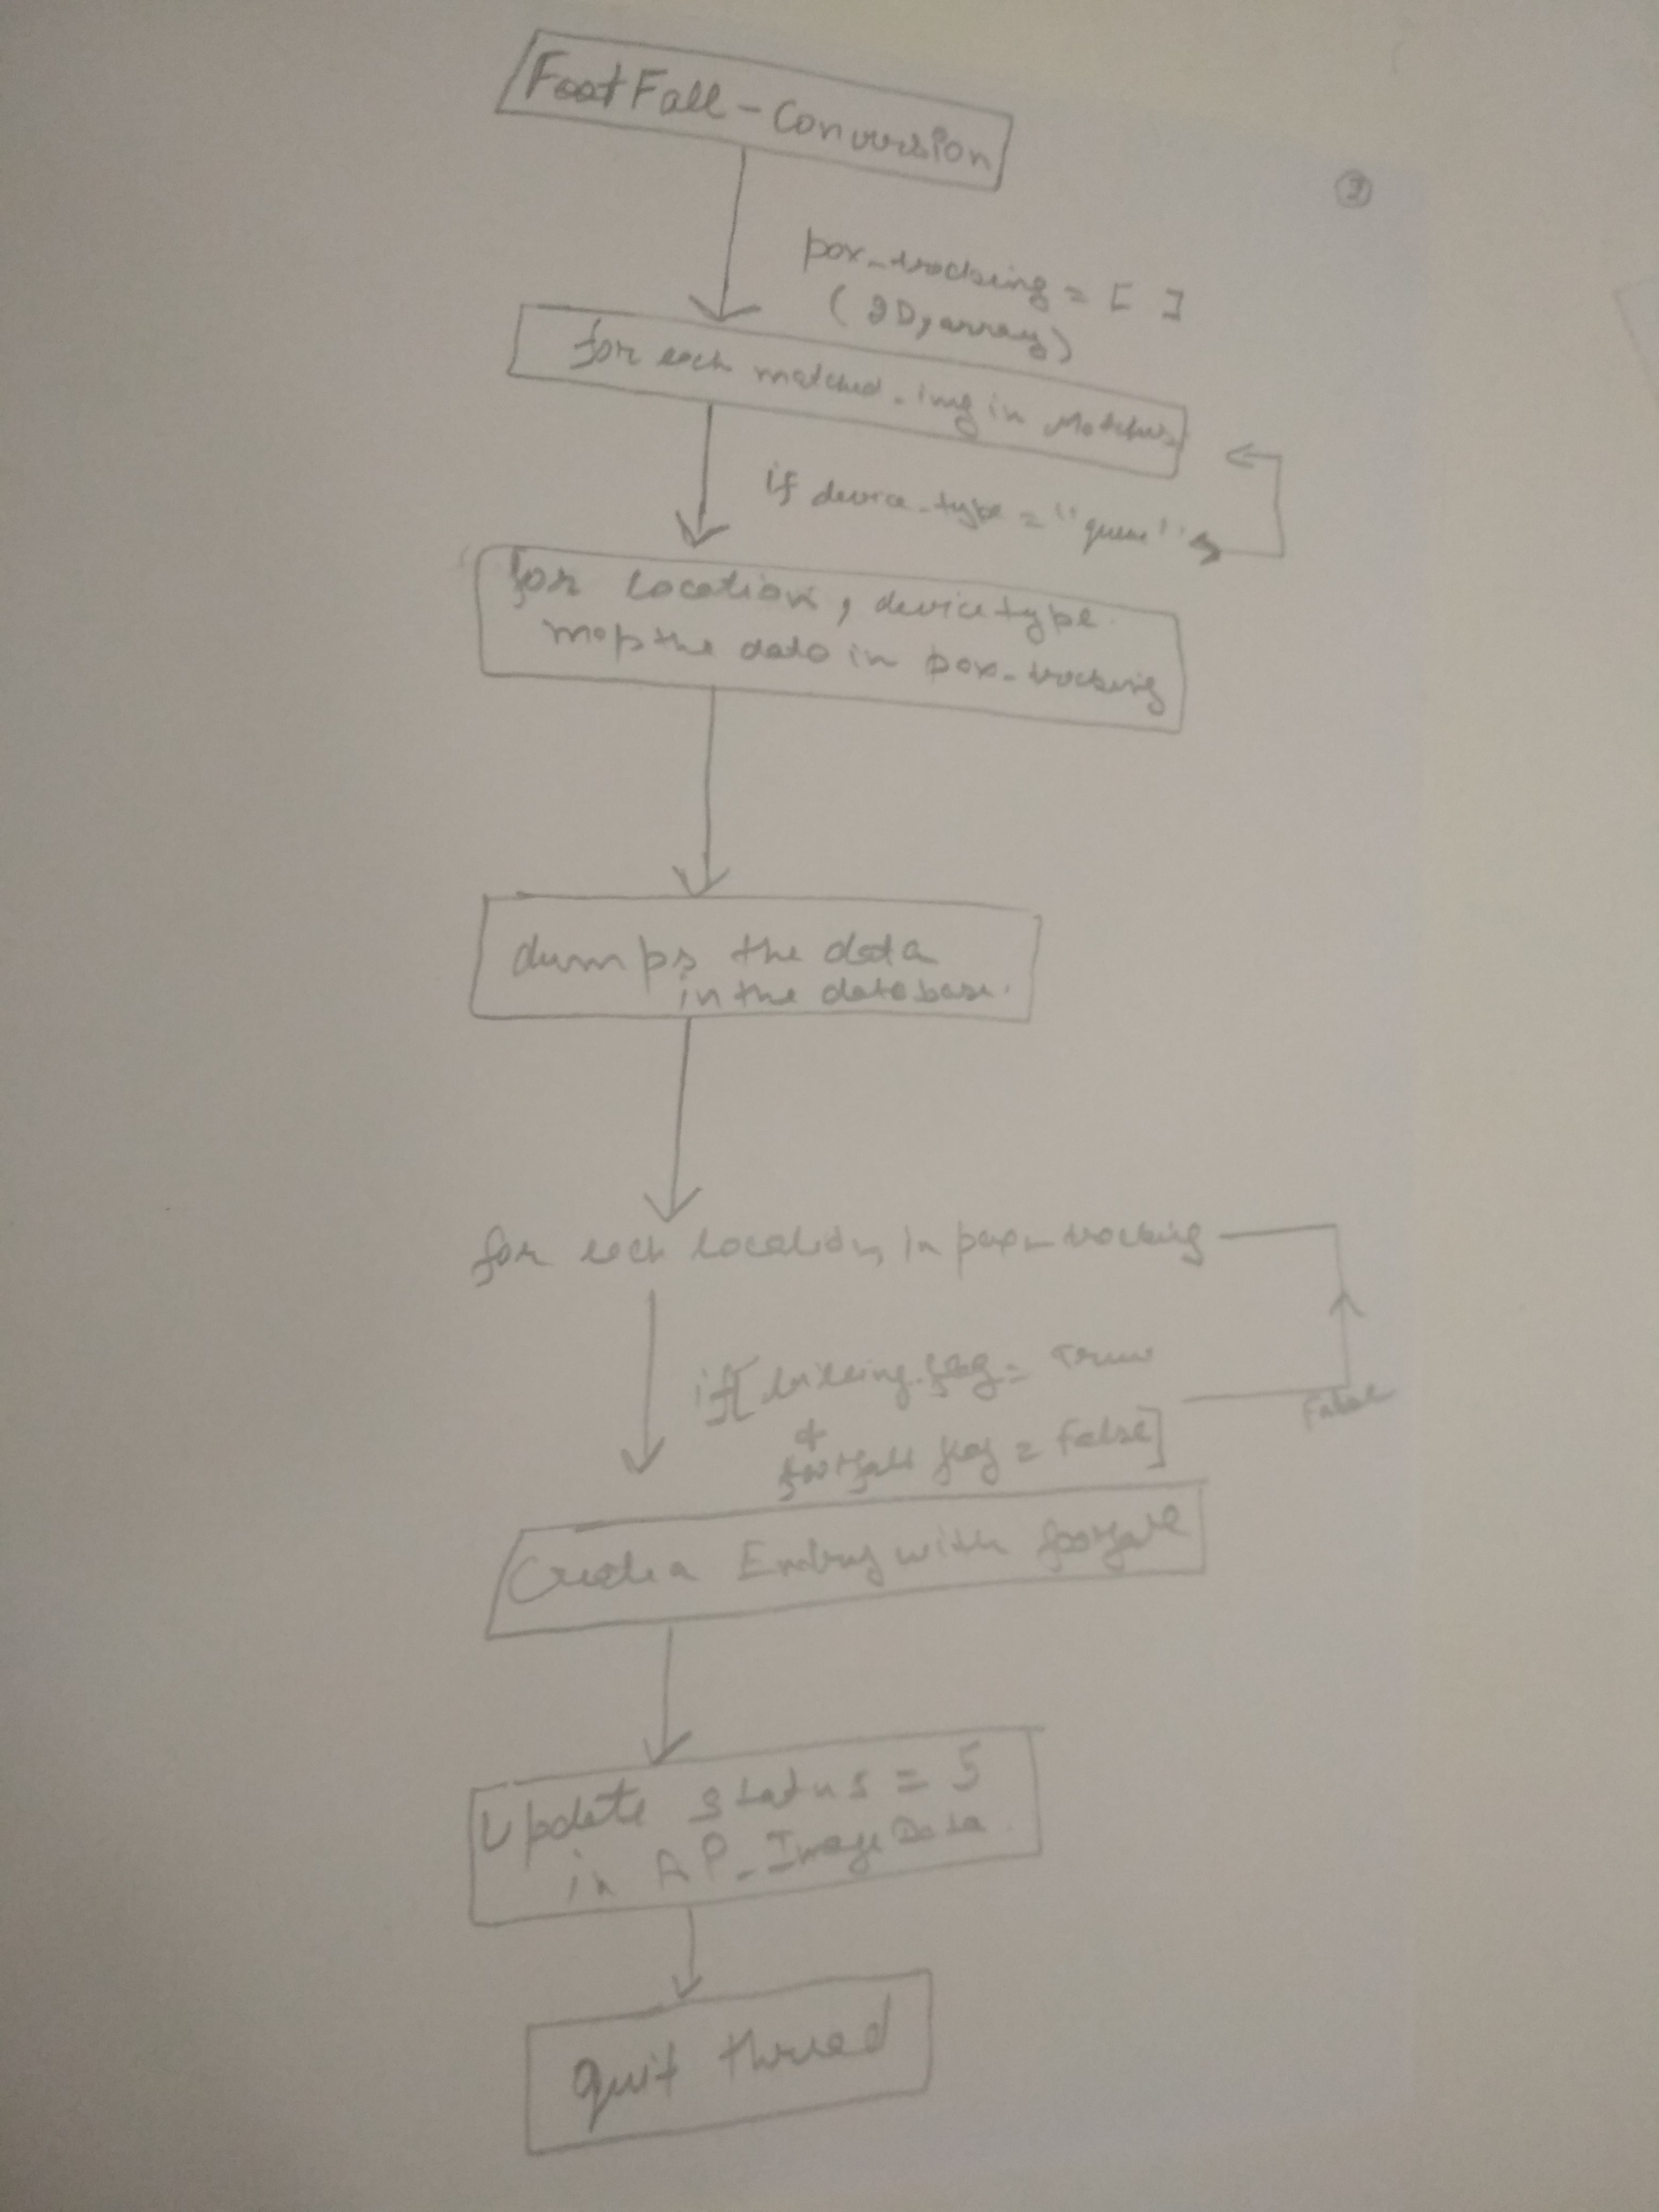 FootFall - Conversion
2
pax_tracking = [ ]
(2D, array)
for each matched_img in Matches
if device_type = "queue"
for location, device type
map the data in pax_tracking
dumps the data
in the database.
for each location in pax_tracking
if [billing flag = True
&
footfall flag = False]
False
Create a Entry with footfall
Update status = 5
in AP_Image Data.
quit thread